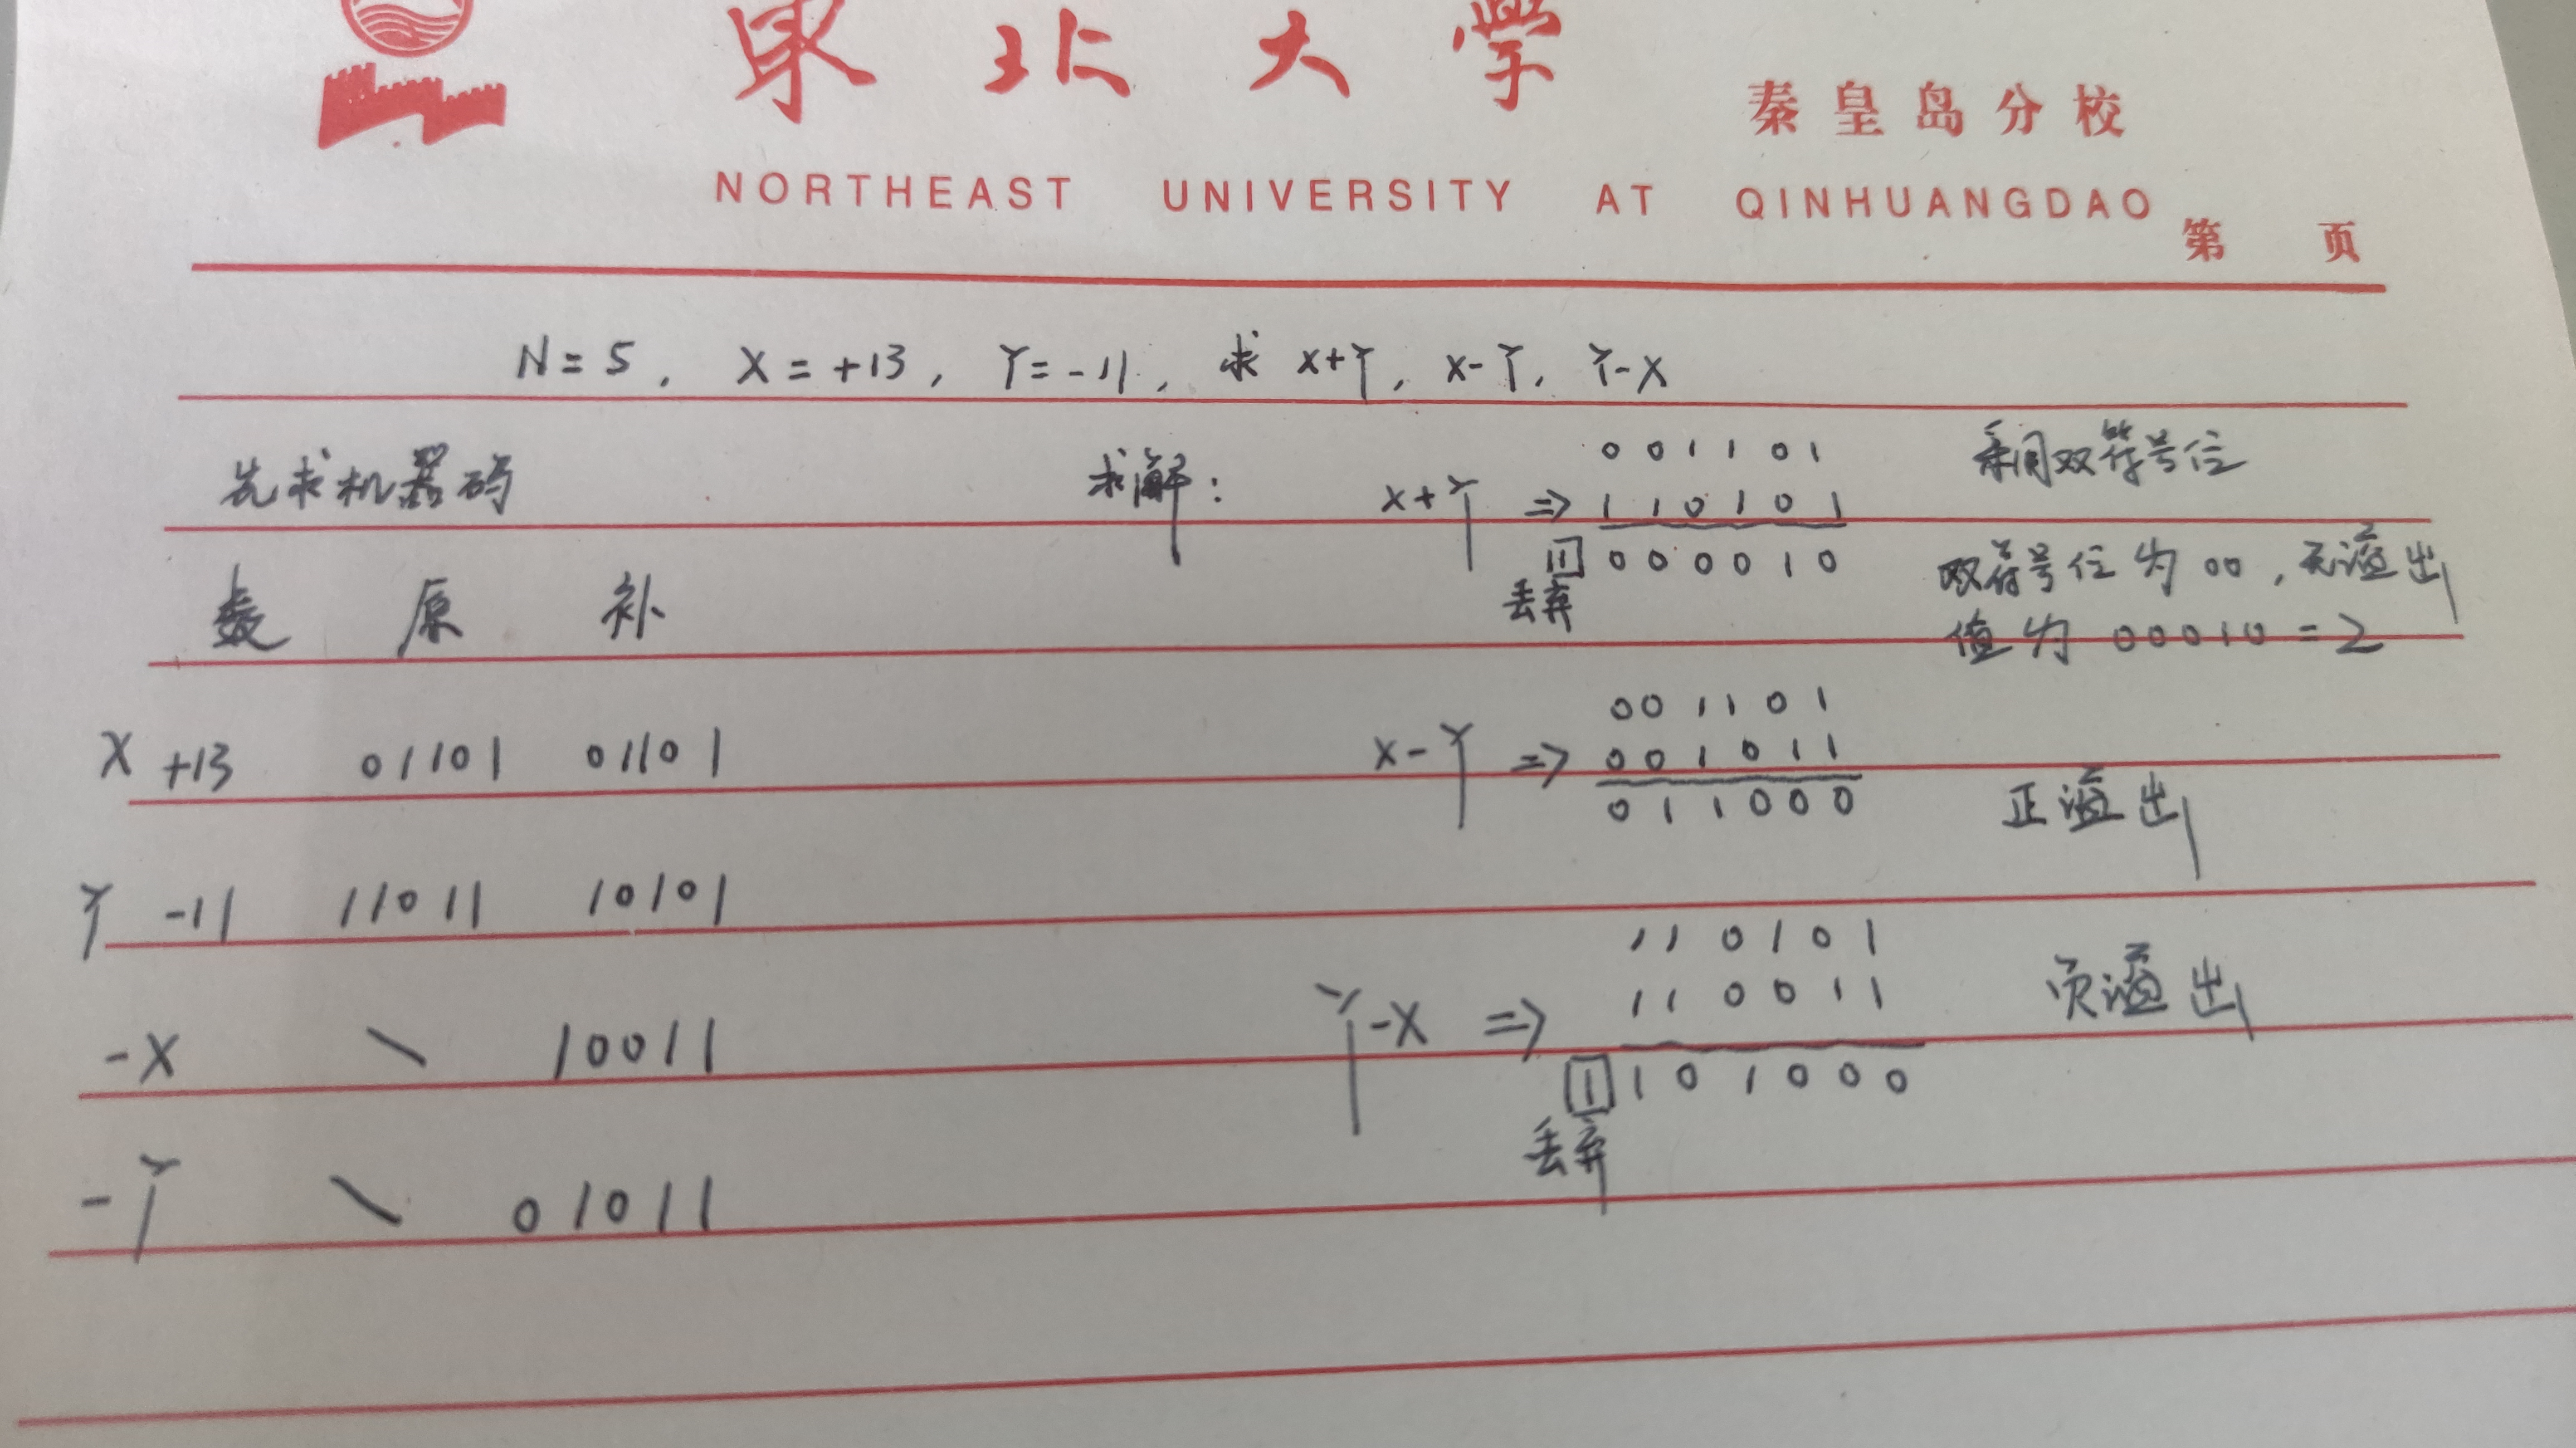 東北大学
秦皇岛分校
NORTHEAST UNIVERSITY AT QINHUANGDAO
第 页
N=5, X=+13, Y=-11, 求 X+Y, X-Y, Y-X
先求机器码
数 原 补
X +13 01101 01101
Y -11 11011 10101
-X \ 10011
-Y \ 01011
求解:
001101
X+Y ⇒ 110101
1 000010
丢弃
采用双符号位
双符号位为00,无溢出
值为00010=2
001101
X-Y ⇒ 001011
011000
正溢出
110101
110011
Y-X ⇒
1 101000
丢弃
负溢出